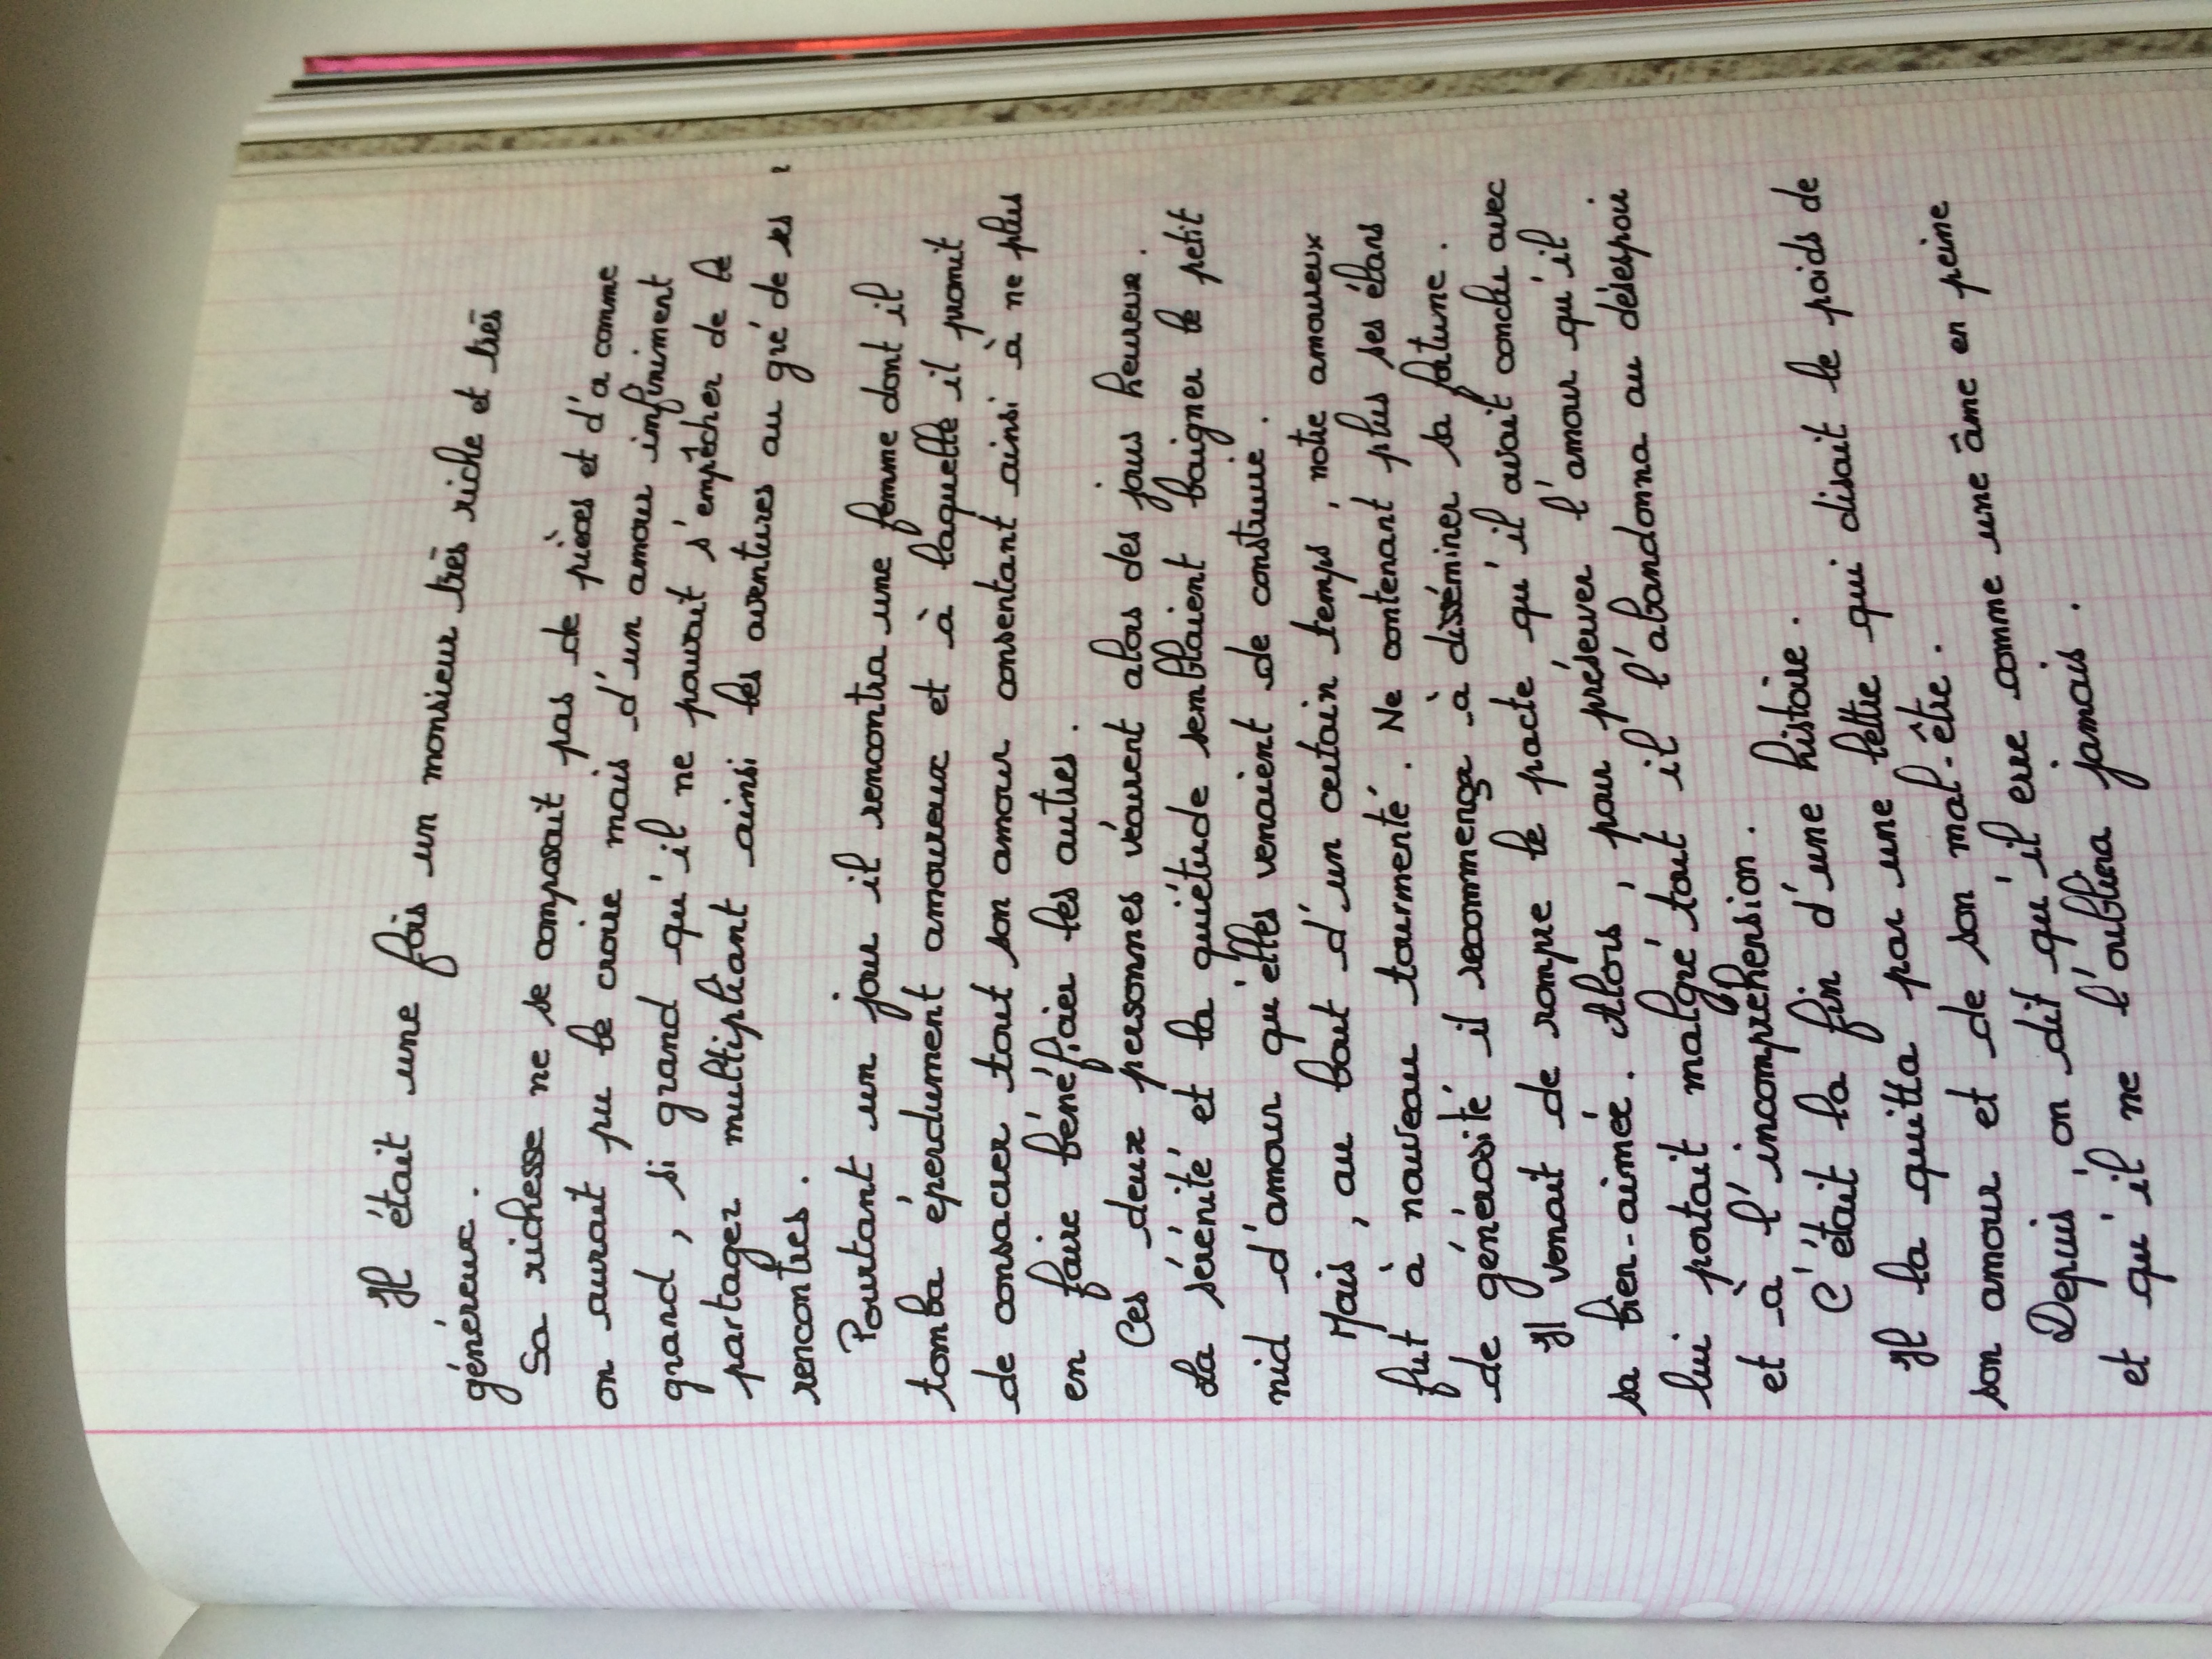 Il était une fois un monsieur très riche et très
généreux.
Sa richesse ne se composait pas de pièces et d'a comme
on aurait pu le croire mais d'un amour infiniment
grand, si grand qu'il ne pouvait s'empêcher de le
partager multipliant ainsi les aventures au gré de ses
rencontres.
Pourtant un jour il rencontra une femme dont il
tomba éperdument amoureux et à laquelle il promit
de consacrer tout son amour consentant ainsi à ne plus
en faire bénéficier les autres.
Ces deux personnes vécurent alors des jours heureux.
La sérénité et la quiétude semblaient baigner le petit
nid d'amour qu'elles venaient de construire.
Mais, au bout d'un certain temps, notre amoureux
fut à nouveau tourmenté. Ne contenant plus ses élans
de générosité il recommença à disséminer sa fortune.
Il venait de rompre le pacte qu'il avait conclu avec
sa bien-aimée. Alors, pour préserver l'amour qu'il
lui portait malgré tout il l'abandonna au désespoir
et à l'incompréhension.
C'était la fin d'une histoire.
Il la quitta par une lettre qui disait le poids de
son amour et de son mal-être.
Depuis, on dit qu'il erre comme une âme en peine
et qu'il ne l'oubliera jamais.